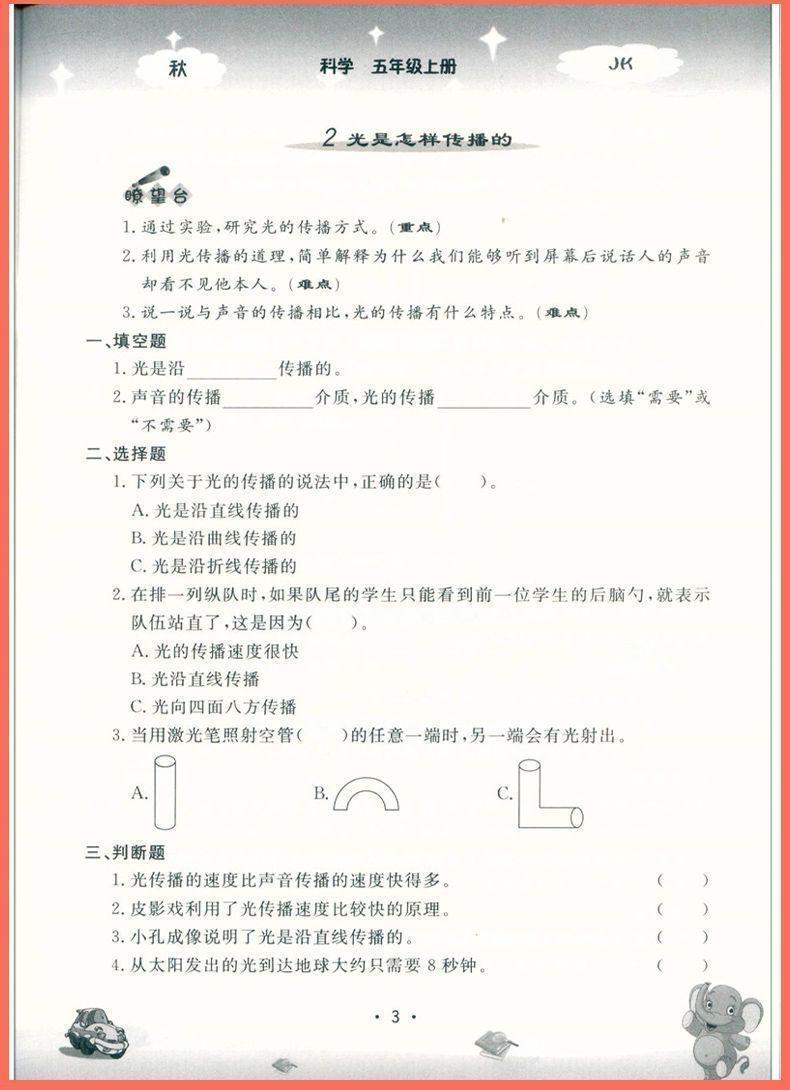 秋
科学 五年级上册
JK
2 光是怎样传播的
瞭望台
1. 通过实验,研究光的传播方式。(重点)
2. 利用光传播的道理,简单解释为什么我们能够听到屏幕后说话人的声音
却看不见他本人。(难点)
3. 说一说与声音的传播相比,光的传播有什么特点。(难点)
一、填空题
1. 光是沿__________传播的。
2. 声音的传播__________介质,光的传播__________介质。(选填“需要”或
“不需要”)
二、选择题
1. 下列关于光的传播的说法中,正确的是(  )。
A. 光是沿直线传播的
B. 光是沿曲线传播的
C. 光是沿折线传播的
2. 在排一列纵队时,如果队尾的学生只能看到前一位学生的后脑勺,就表示
队伍站直了,这是因为(  )。
A. 光的传播速度很快
B. 光沿直线传播
C. 光向四面八方传播
3. 当用激光笔照射空管(  )的任意一端时,另一端会有光射出。
A. B. C.
三、判断题
1. 光传播的速度比声音传播的速度快得多。 (  )
2. 皮影戏利用了光传播速度比较快的原理。 (  )
3. 小孔成像说明了光是沿直线传播的。 (  )
4. 从太阳发出的光到达地球大约只需要 8 秒钟。 (  )
· 3 ·